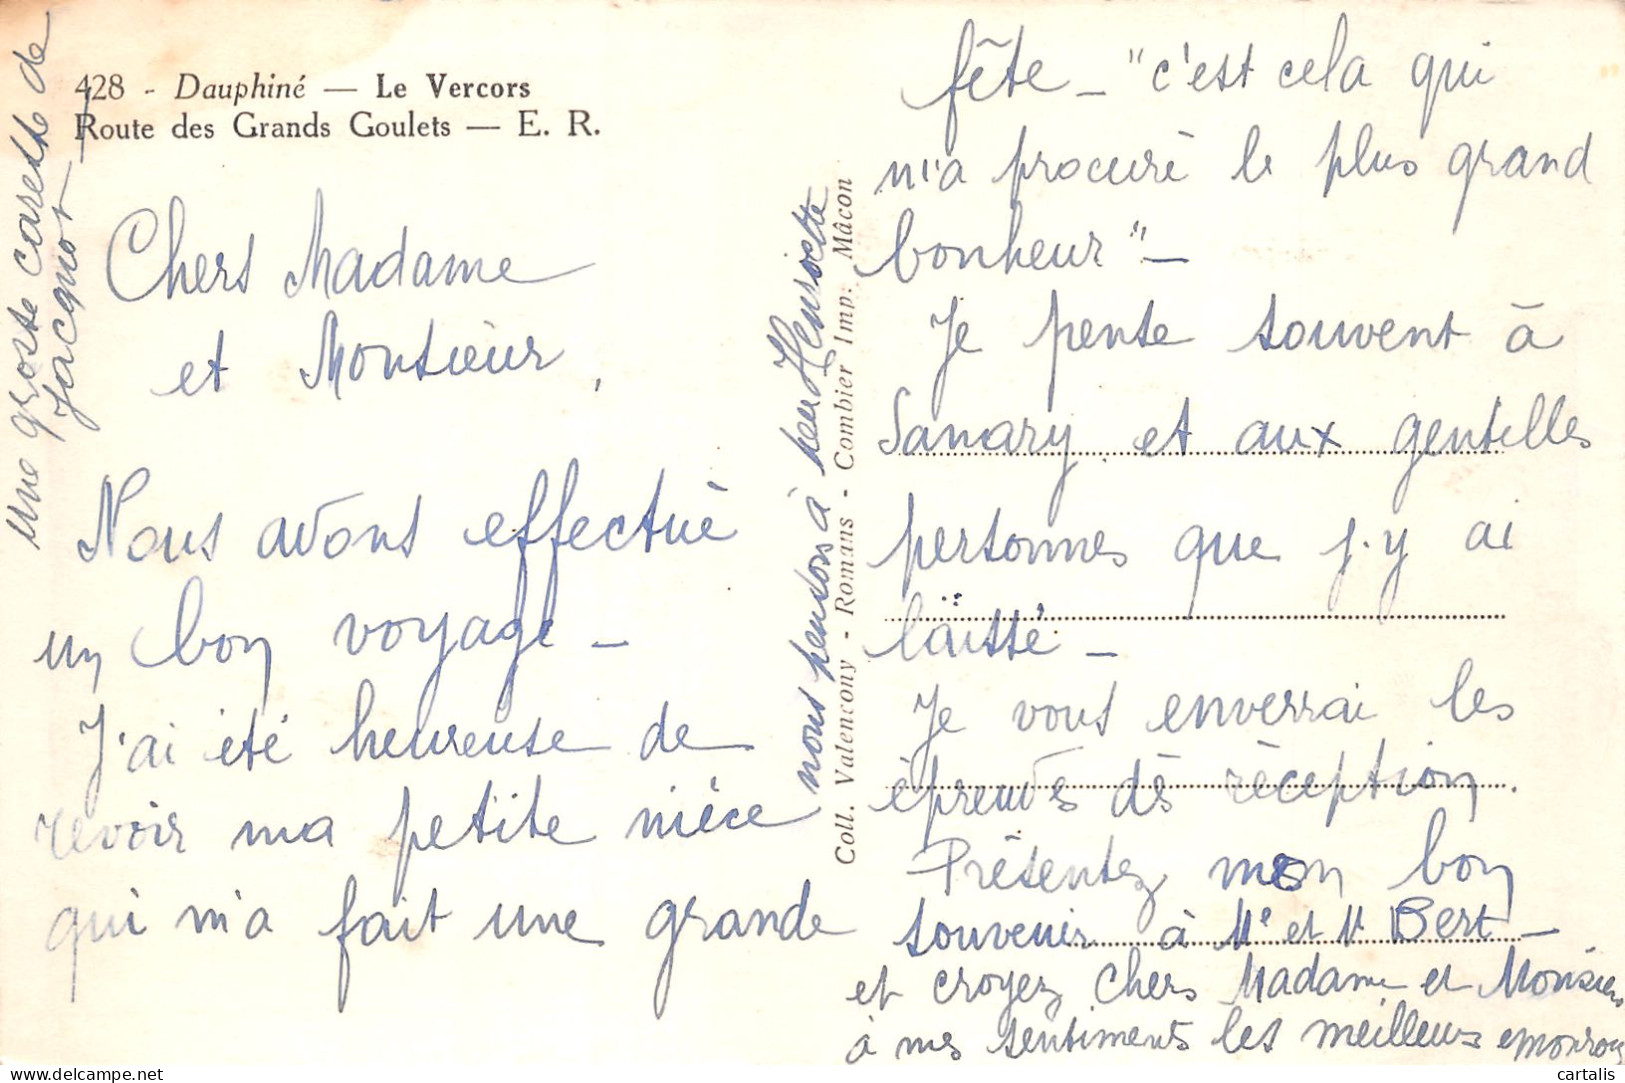 428 - Dauphiné — Le Vercors
Route des Grands Goulets — E. R.
Chers Madame
et Monsieur,
Nous avons effectué
un bon voyage —
J'ai été heureuse de
revoir ma petite nièce
qui m'a fait une grande
fête — "c'est cela qui
m'a procuré le plus grand
bonheur" —
Je pense souvent à
Sanary et aux gentilles
personnes que j'y ai
laissé —
Je vous enverrai les
épreuves dès réception.
Présentez mon bon
souvenir à Me et M Bert —
et croyez Chers Madame et Monsieur
à mes sentiments les meilleurs
nous pensons à Henriette
Coll. Valencony - Romans - Combier Imp. Mâcon
une grosse caresse de
Jacquot —
cartalis
delcampe.net